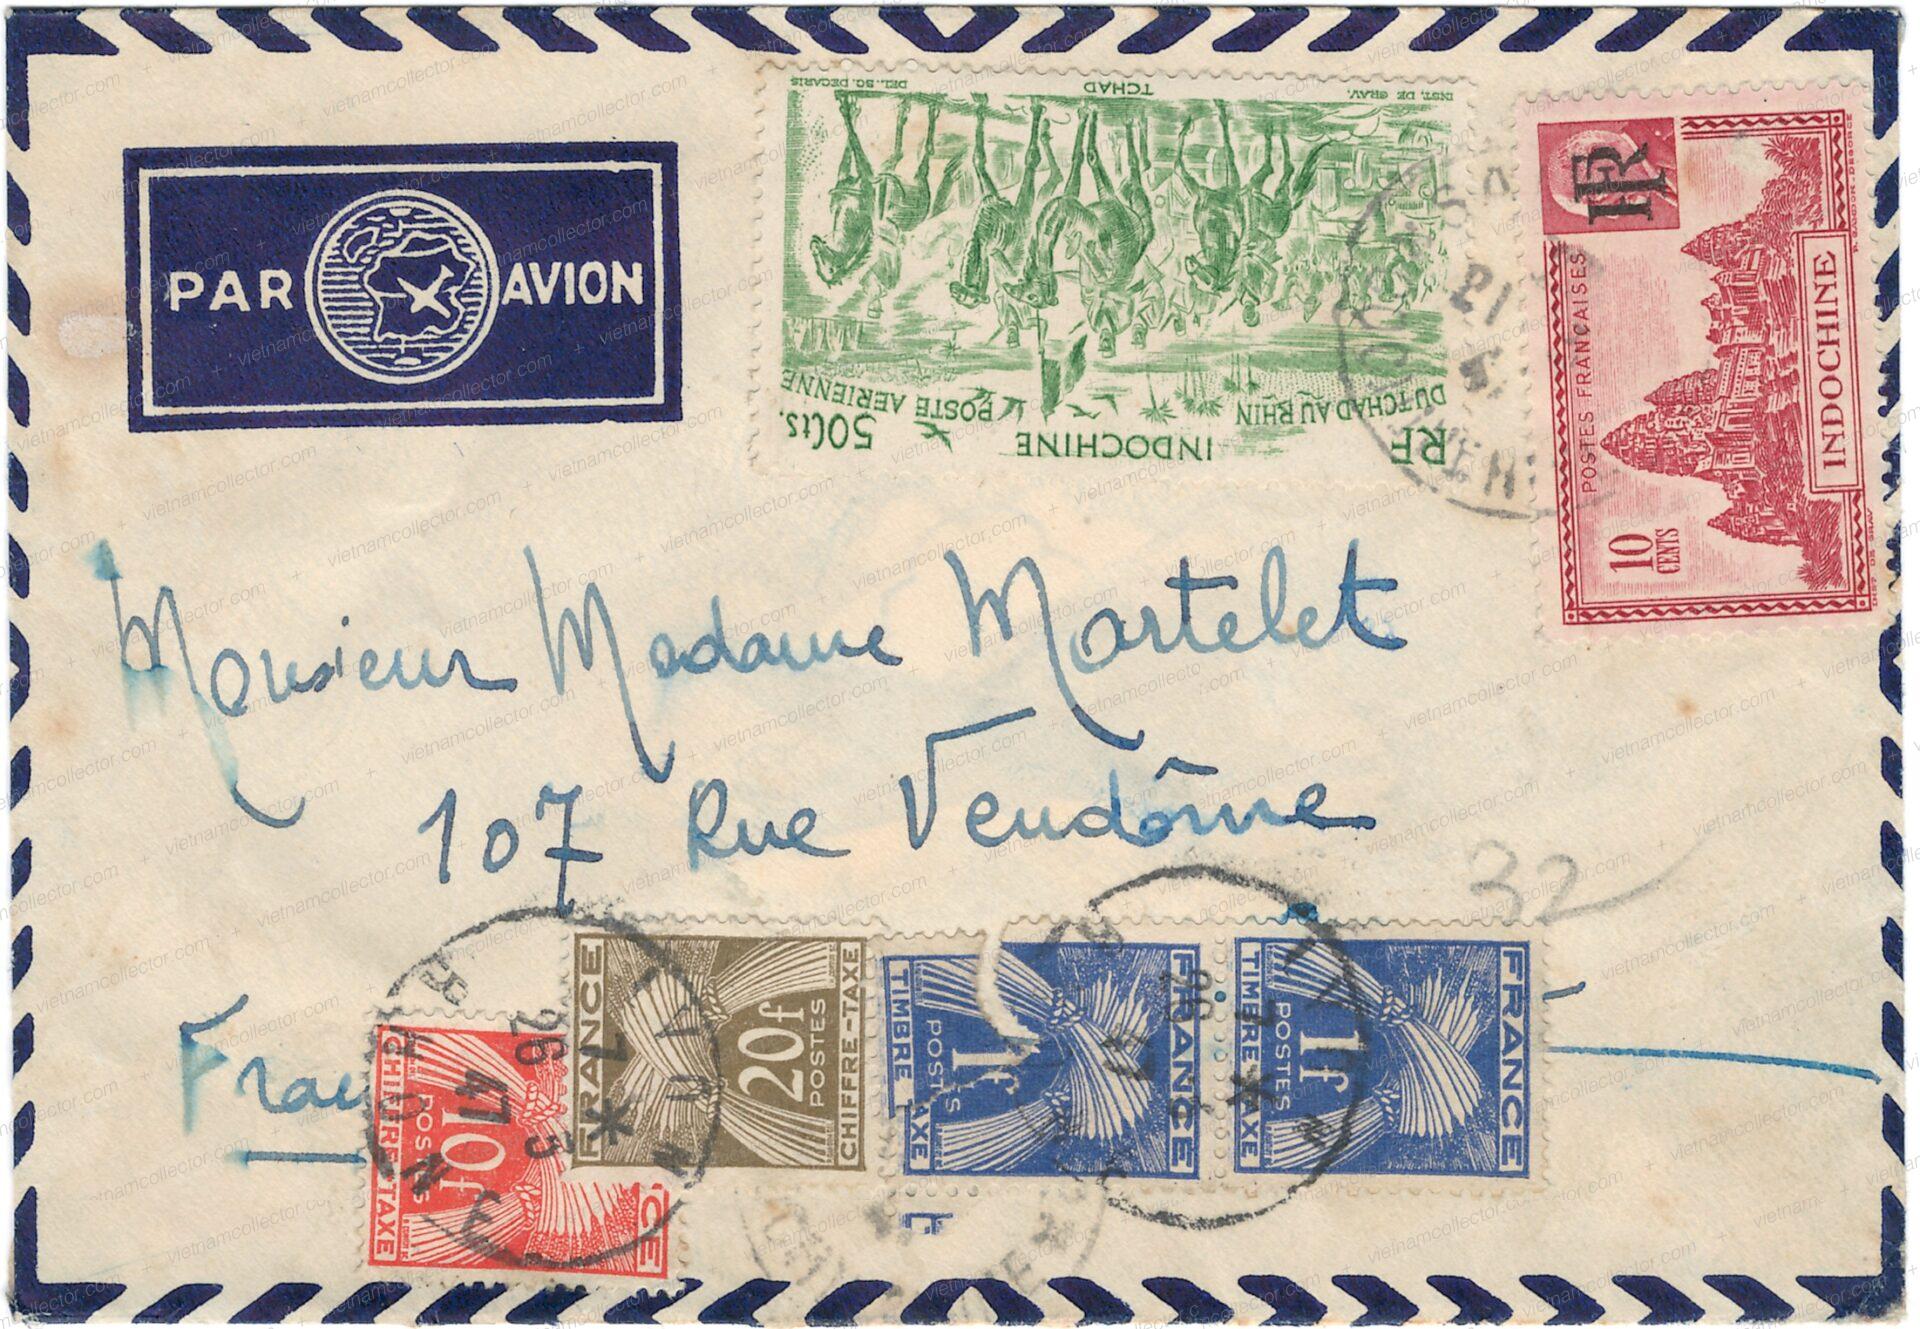 PAR AVION
INST. DE GRAV. TCHAD DEL. SC. DECARIS
DU TCHAD AU RHIN POSTE AERIENNE
RF INDOCHINE 50cts.
RF
POSTES FRANÇAISES
INDOCHINE
10 CENTS
INST. DE GRAV.
21
Monsieur Madame Martelet
107 Rue Vendôme
32
LYON
RHONE
26 - 5
47
FRANCE
20f
POSTES
CHIFFRE-TAXE
FRANCE
1f
POSTES
TIMBRE TAXE
FRANCE
1f
POSTES
TIMBRE TAXE
LYON
26
47
10f
POSTES
CHIFFRE-TAXE
CE
vietnamcollector.com